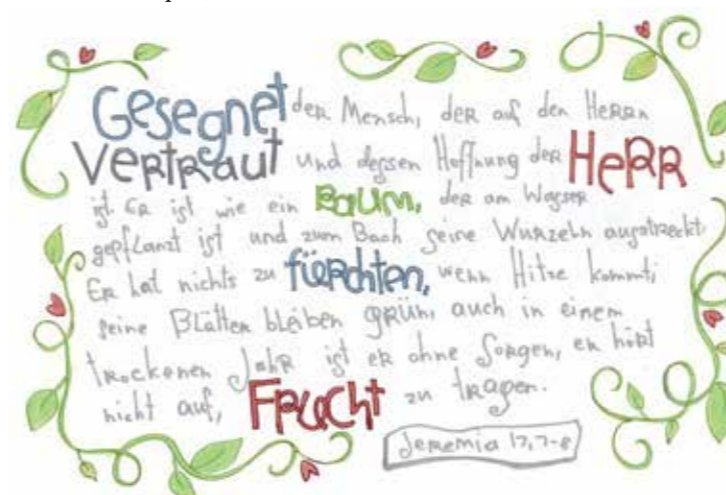 Gesegnet der Mensch, der auf den Herrn
Vertraut und dessen Hoffnung der HeRR
ist. Er ist wie ein Baum, der am Wasser
gepflanzt ist und zum Bach seine Wurzeln ausstreckt:
Er hat nichts zu fürchten, wenn Hitze kommt;
seine Blätter bleiben grün, auch in einem
trockenen Jahr ist er ohne Sorgen, er hört
nicht auf, Frucht zu tragen.
Jeremia 17,7-8